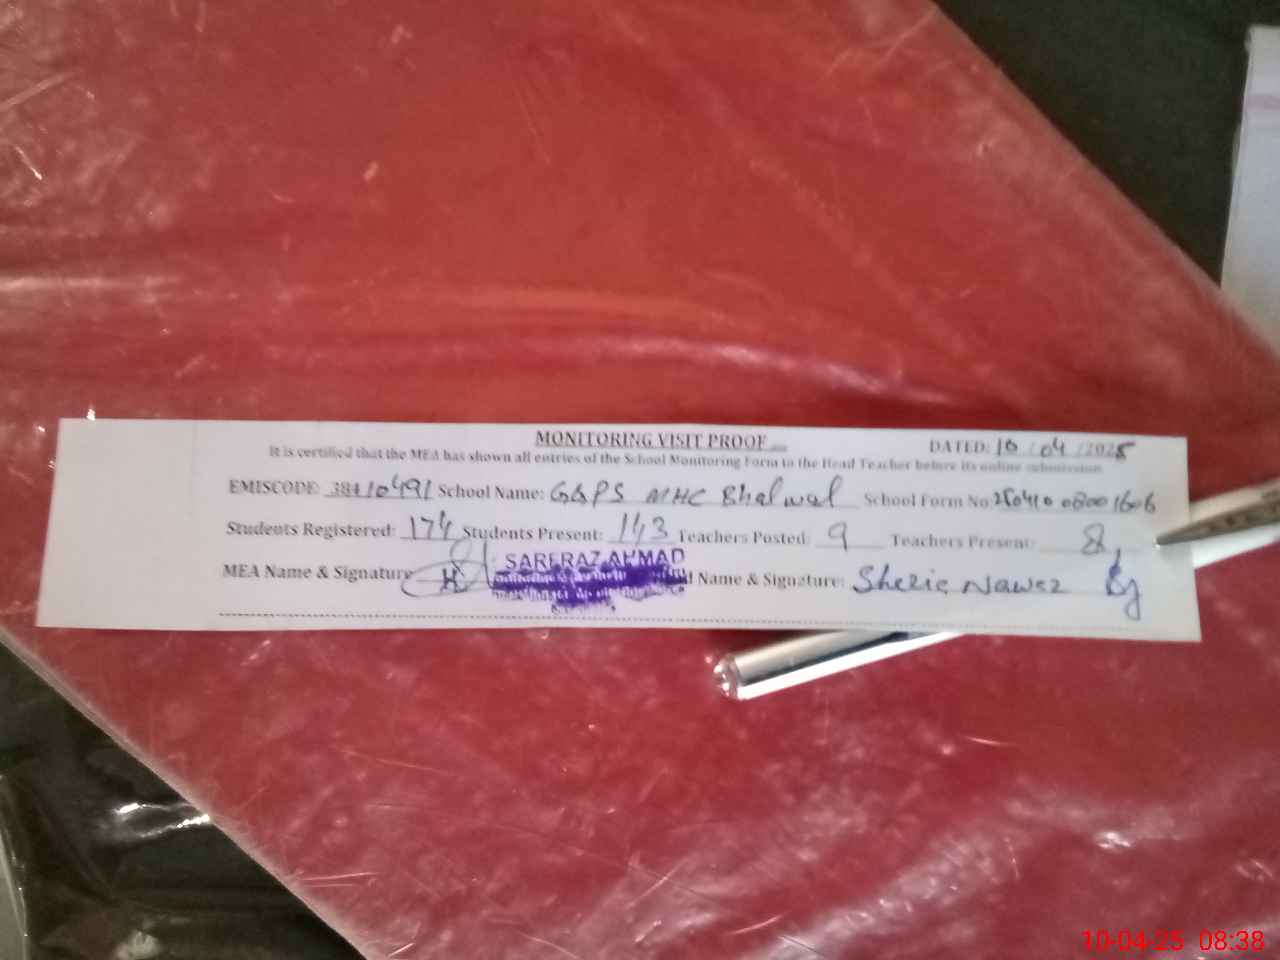 MONITORING VISIT PROOF
DATED: 10/04/2025
It is certified that the MEA has shown all entries of the School Monitoring Form to the Head Teacher before its online submission
EMISCODE: 38410491 School Name: GGPS MHC Bhalwal School Form No: 250410 08001606
Students Registered: 174 Students Present: 143 Teachers Posted: 9 Teachers Present: 8
MEA Name & Signature SARFRAZ AHMAD Name & Signature: Nawaz
10-04-25 08:38